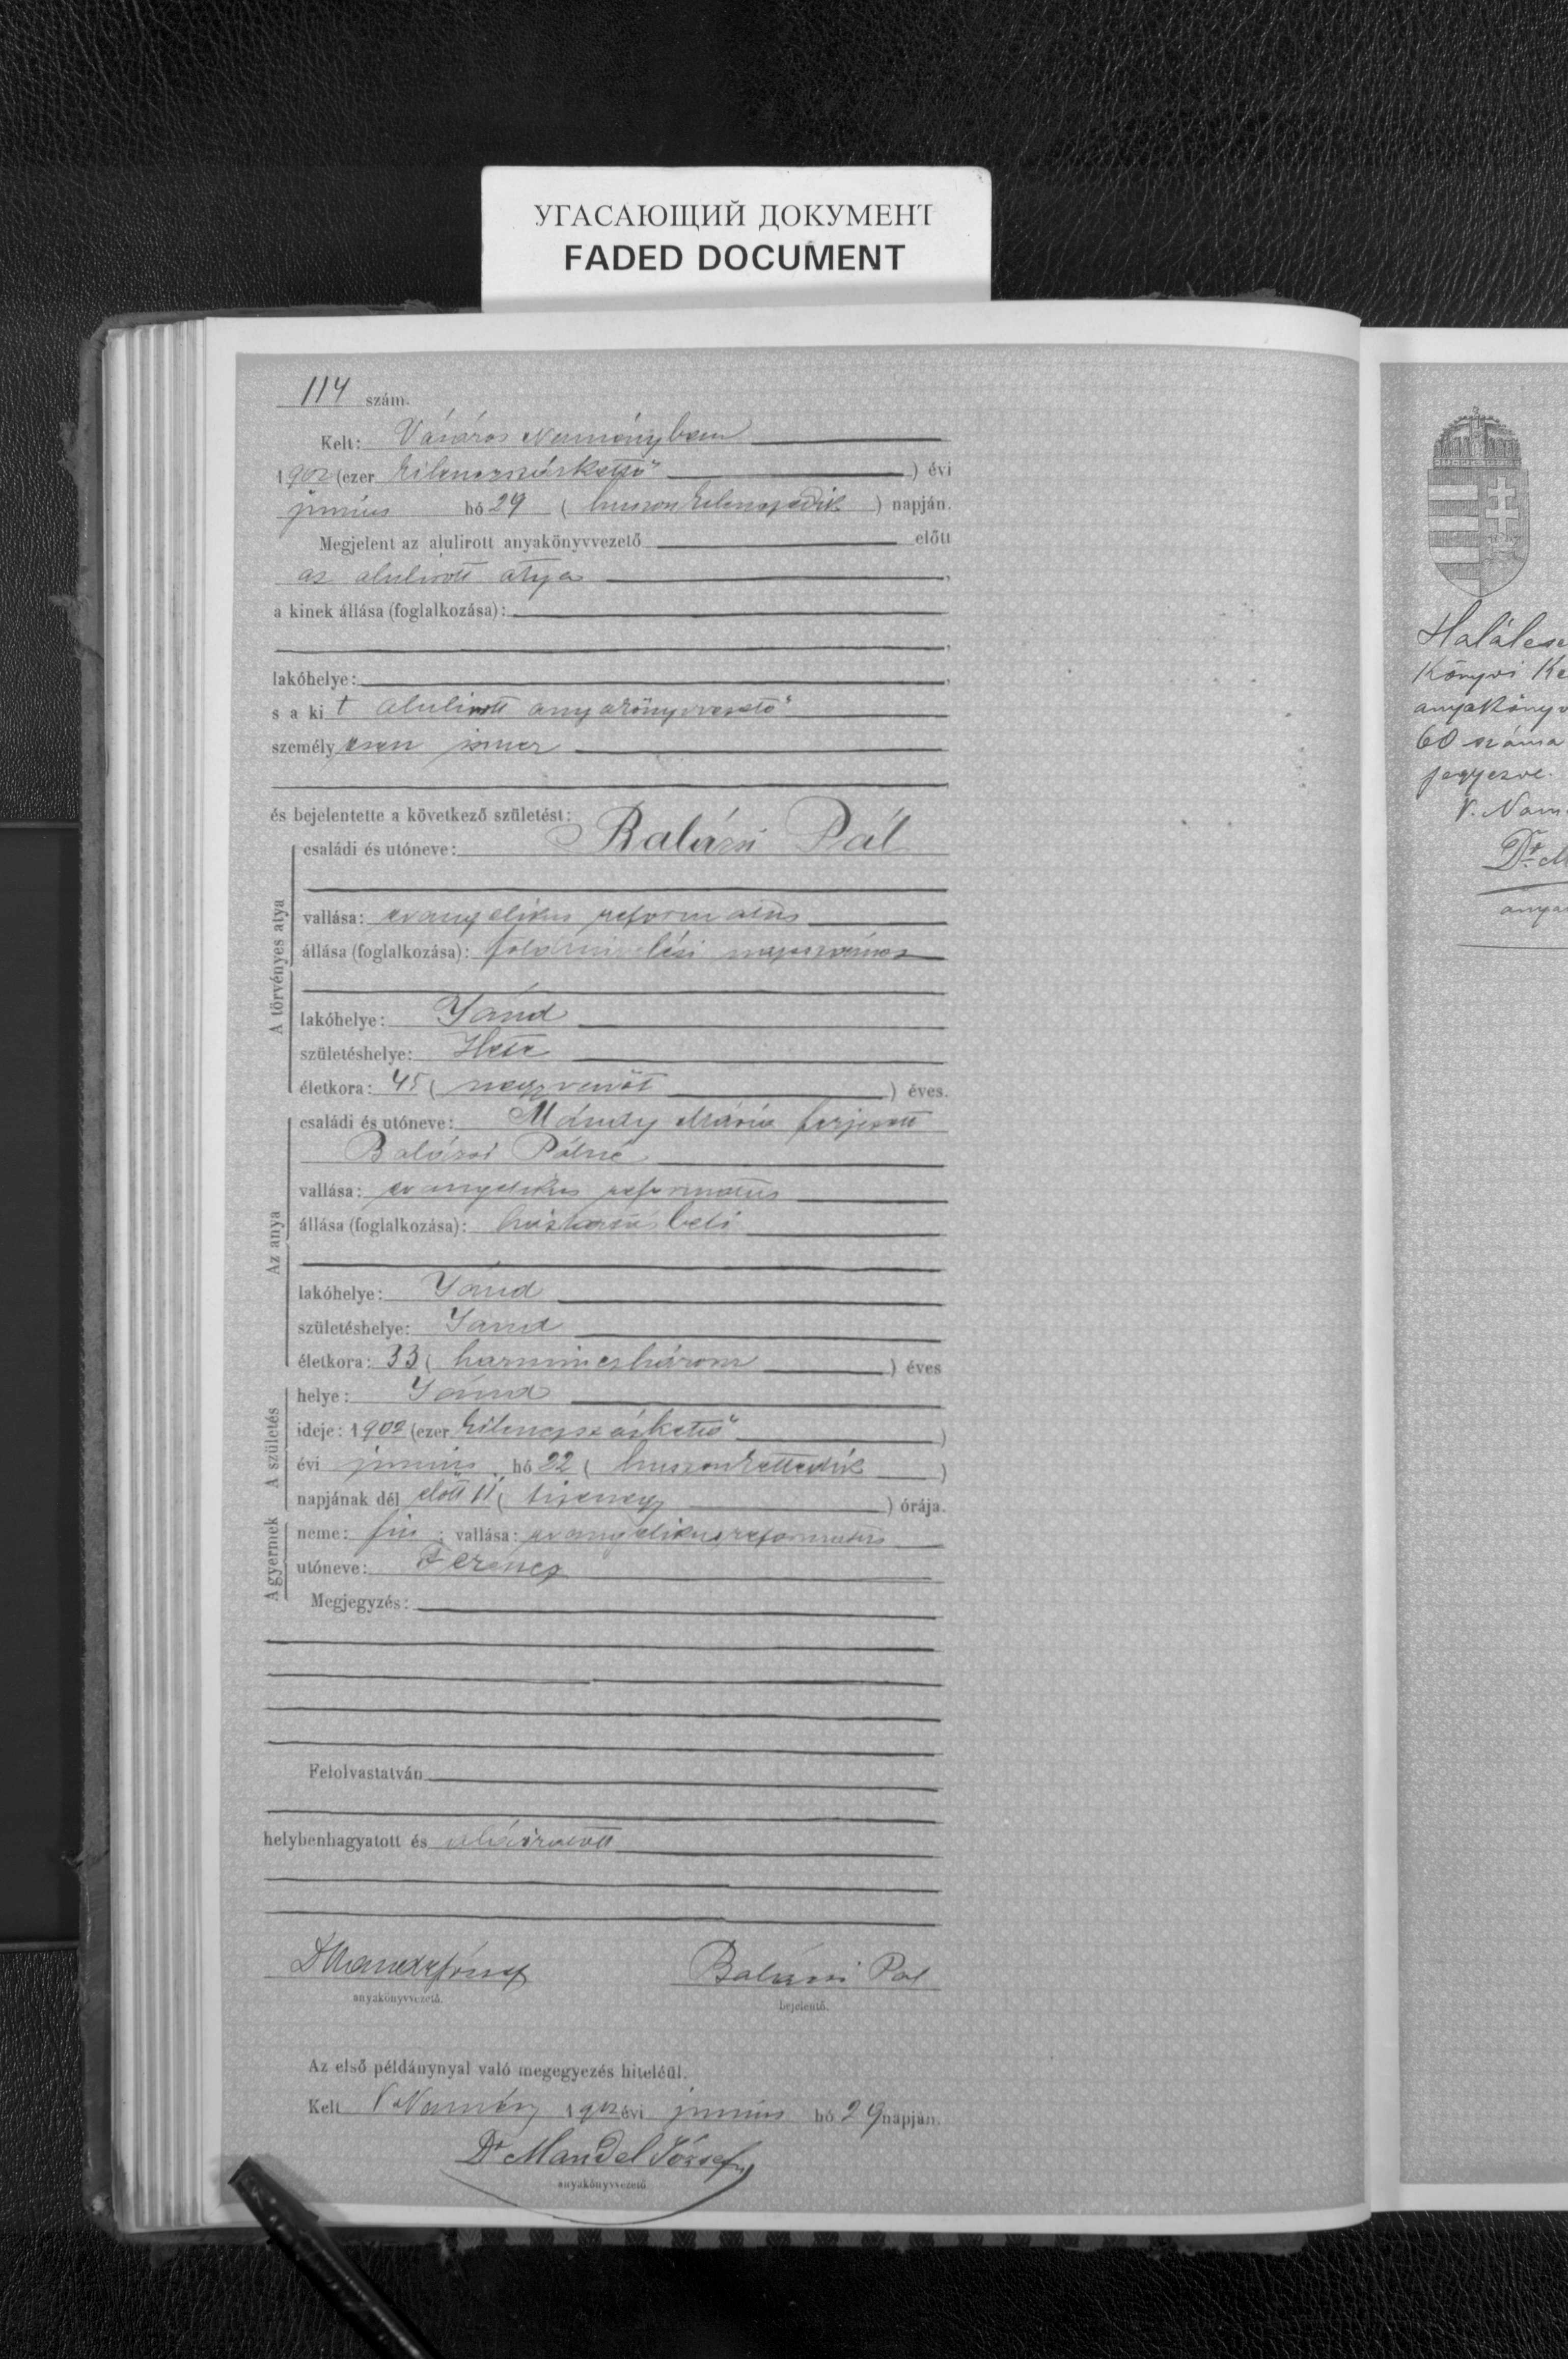 УГАСАЮЩИЙ ДОКУМЕНТ
FADED DOCUMENT
114 szám.
Kelt: Vásáros Naményban
1902 (ezer kilenczszázkettő) évi
június hó 29 (huszonkilenczedik) napján.
Megjelent az alulirott anyakönyvvezető előtt
az alulirott atya,
a kinek állása (foglalkozása):
lakóhelye:
s a kit alulirott anyakönyvvezető
személyesen ismer
és bejelentette a következő születést:
A törvényes atya
családi és utóneve: Balázsi Pál
vallása: evangelikus reformatus
állása (foglalkozása): földmivelési napszámos
lakóhelye: Jánd
születéshelye: Hete
életkora: 45 (negyvenöt) éves.
Az anya
családi és utóneve: Mándy Mária férjezett
Balázsi Pálné
vallása: evangelikus reformatus
állása (foglalkozása): háztartásbeli
lakóhelye: Jánd
születéshelye: Jánd
életkora: 33 (harminczhárom) éves
A születés
helye: Jánd
ideje: 1902 (ezer kilenczszázkettő)
évi június hó 22 (huszonkettedik)
napjának dél előtt 11 (tizenegy) órája.
A gyermek
neme: fiu; vallása: evangelikus reformatus
utóneve: Ferencz
Megjegyzés:
Felolvastatván
helybenhagyatott és aláiratott
Dr Mandel József Balázsi Pál
anyakönyvvezető. bejelentő.
Az első példánynyal való megegyezés hiteléül.
Kelt V. Namény 1902 évi június hó 29 napján.
Dr Mandel József
anyakönyvvezető
Halálese
könyvi
anyakönyv
60 száma
jegyezve.
V. Nam
Dr. M
anya